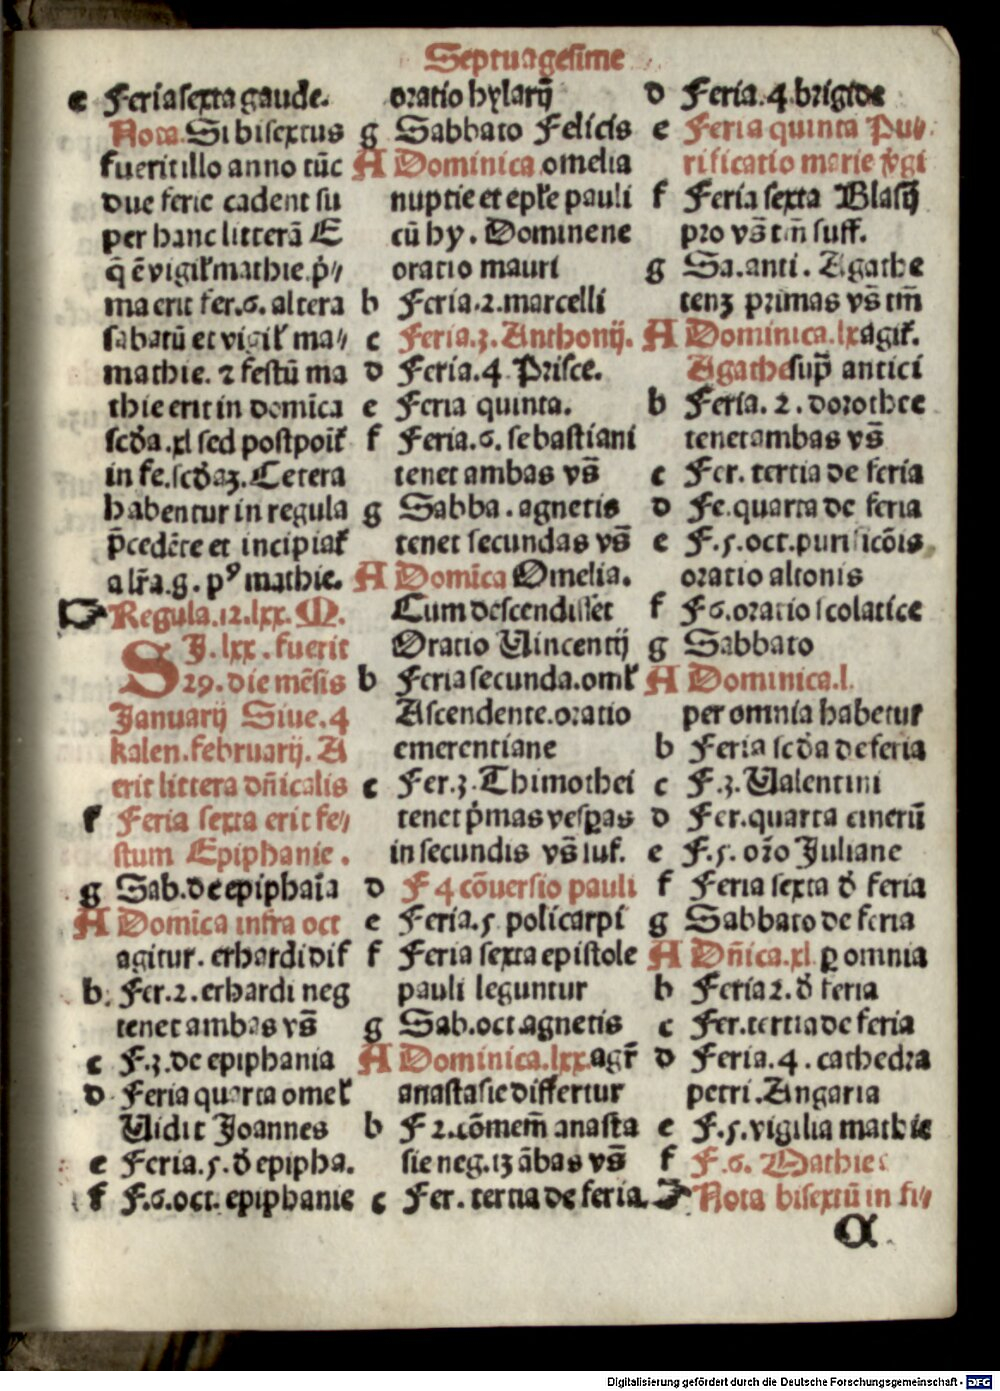 Septuagesime
e Feria sexta gaude.
Nota. Si bisextus
fuerit illo anno tūc
due ferie cadent su
per hanc litterā E
q̄ ē vigiłmathie.p̄//
ma erit fer.6. altera
sabatū et vigił ma//
mathie. ⁊ festū ma
thie erit in domīca
scđa.xl sed postpoit̄
in fe.scđaʒ. Cetera
habentur in regula
p̄cedēte et incipiat̄
alr̄a.g. pꝰ mathie.
☞ Regula.12.lxx. M.
SJ.lxx.fuerit
29.die mēsis
Januarij Siue.4
kalen.februarij. A
erit littera dn̄icalis
f Feria sexta erit fe//
stum Epiphanie.
g Sab.de epiphaīa
A Domīca infra oct
agitur. erhardi dif
b Fer.2.erhardi neg
tenet ambas vs̄
c F.3.de epiphania
d Feria quarta omeł
Uidit Joannes
e Feria.5.đ epipha.
f F.6.oct.epiphanie
oratio hylarij
g Sabbato Felicis
A Dominica omelia
nuptie et epłe pauli
cū hy. Domine ne
oratio mauri
b Feria.2.marcelli
c Feria.3.Anthonij.
d Feria.4 Prisce.
e Feria quinta.
f Feria.6.sebastiani
tenet ambas vs̄
g Sabba.agnetis
tenet secundas vs̄
A Domīca Omelia.
Cum descendisset
Oratio Uincentij
b Feria secunda.omł
Ascendente.oratio
emerentiane
c Fer.3.Thimothei
tenet p̄mas vesꝑas
in secundis vs̄ suf.
d F 4 cōuersio pauli
e Feria.5 policarpi
f Feria sexta epistole
pauli leguntur
g Sab.oct.agnetis
A Dominica.lxx.agr̄
anastasie differtur
b F 2.cōmem̄ anasta
sie neg.tʒ ābas vs̄
c Fer. tertia de feria.
d Feria.4.brigide
e Feria quinta Pu//
rificatio marie v̄gi
f Feria sexta Blasij
pro vs̄ tm̄ suff.
g Sa.anti. Agathe
tenʒ primas vs̄ tm̄
A Dominica.lx agił.
Agathe sup̄ antici
b Feria.2.dorothee
tenet ambas vs̄
c Fer. tertia de feria
d Fe.quarta de feria
e F.5.oct.purificōis
oratio altonis
f F 6.oratio scolatice
g Sabbato
A Dominica.l.
per omnia habetur
b Feria scđa de feria
c F.3.Ualentini
d Fer.quarta cinerū
e F.5. or̄o Juliane
f Feria sexta đ feria
g Sabbato de feria
A Dn̄ica.xl ꝑ omnia
b Feria 2.đ feria
c Fer.tertia de feria
d Feria.4.cathedra
petri.Angaria
e F.5.vigilia mathie
f F.6.Mathie
☞ Nota bisextū in fi//
α
Digitalisierung gefördert durch die Deutsche Forschungsgemeinschaft - DFG